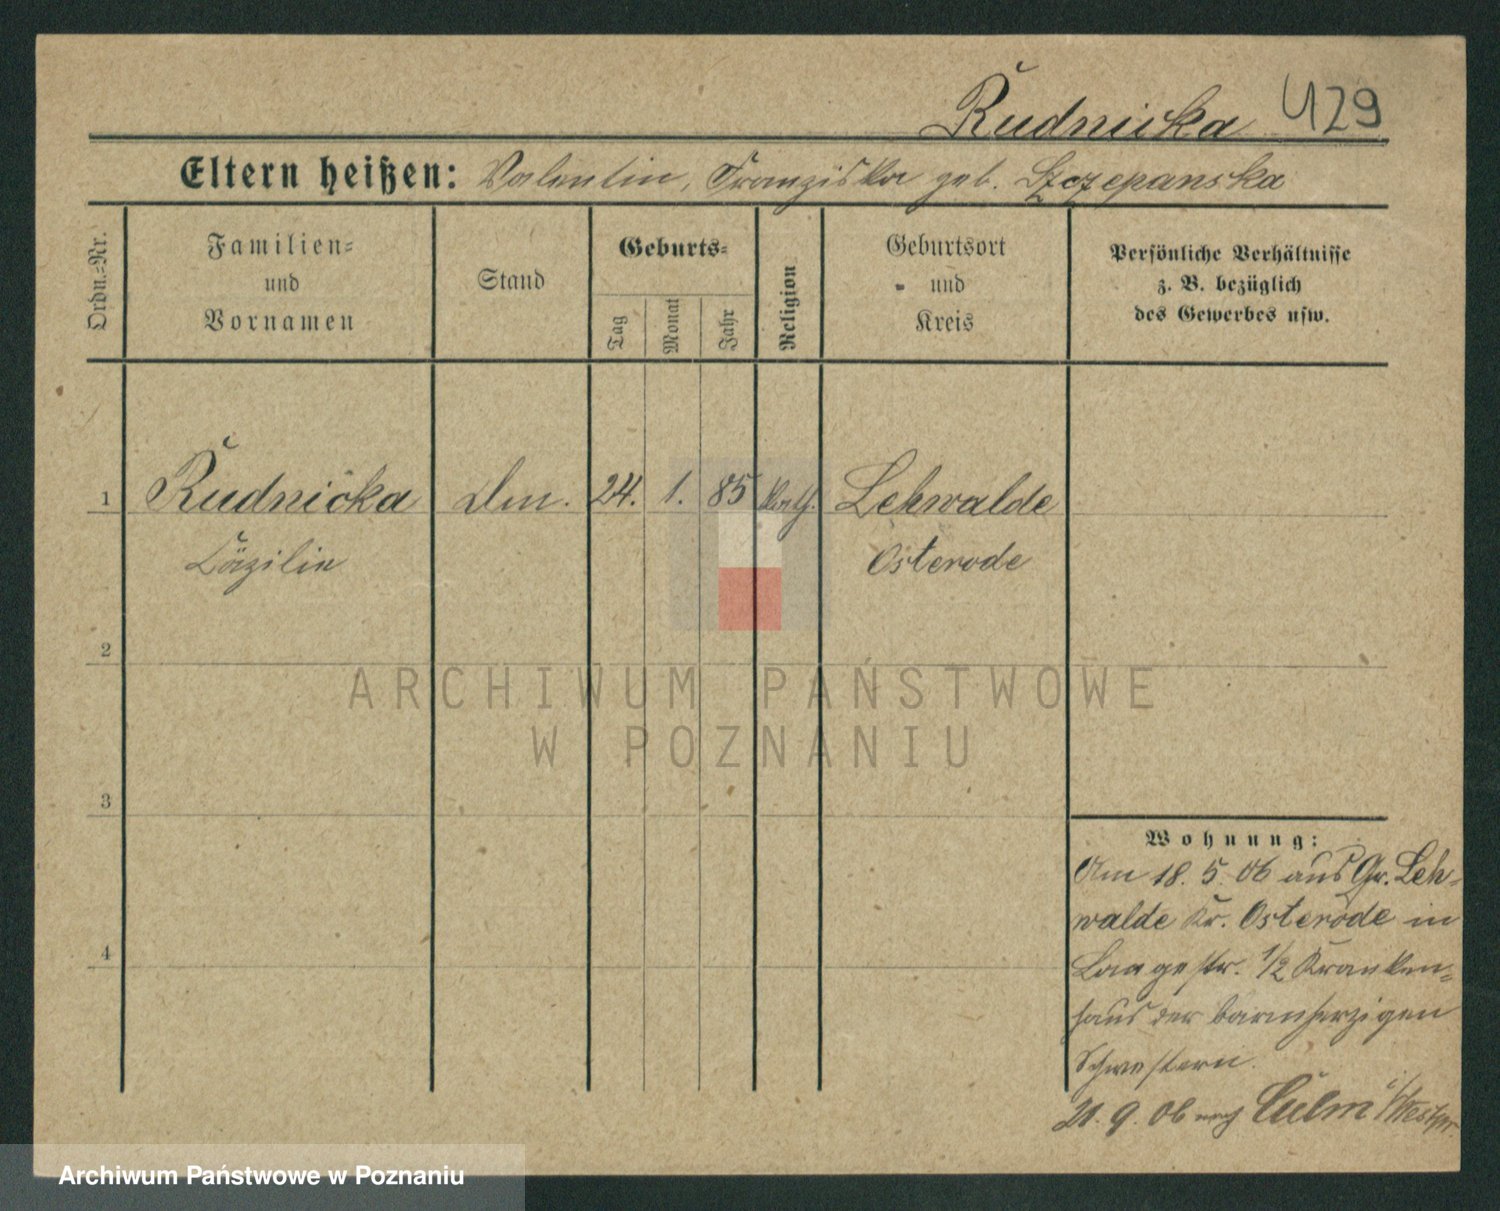 Rudnicka 429
Eltern heißen: Valentin, Franziska geb. Szczepanska
Ordn.-Nr.
Familien-
und
Vornamen
Stand
Geburts-
Tag
Monat
Jahr
Religion
Geburtsort
und
Kreis
Persönliche Verhältnisse
z. B. bezüglich
des Gewerbes usw.
1 Rudnicka 24. 1. 85 kath. Lehwalde
Cäzilie Osterode
2
ARCHIWUM PAŃSTWOWE
W POZNANIU
3
Wohnung:
Am 18. 5. 06 aus Gr. Leh-
walde Kr. Osterode in
Langestr. 1/2 Kranken-
haus der barmherzigen
4
Schwestern.
21. 9. 06 nach Culm i/Westpr.
Archiwum Państwowe w Poznaniu